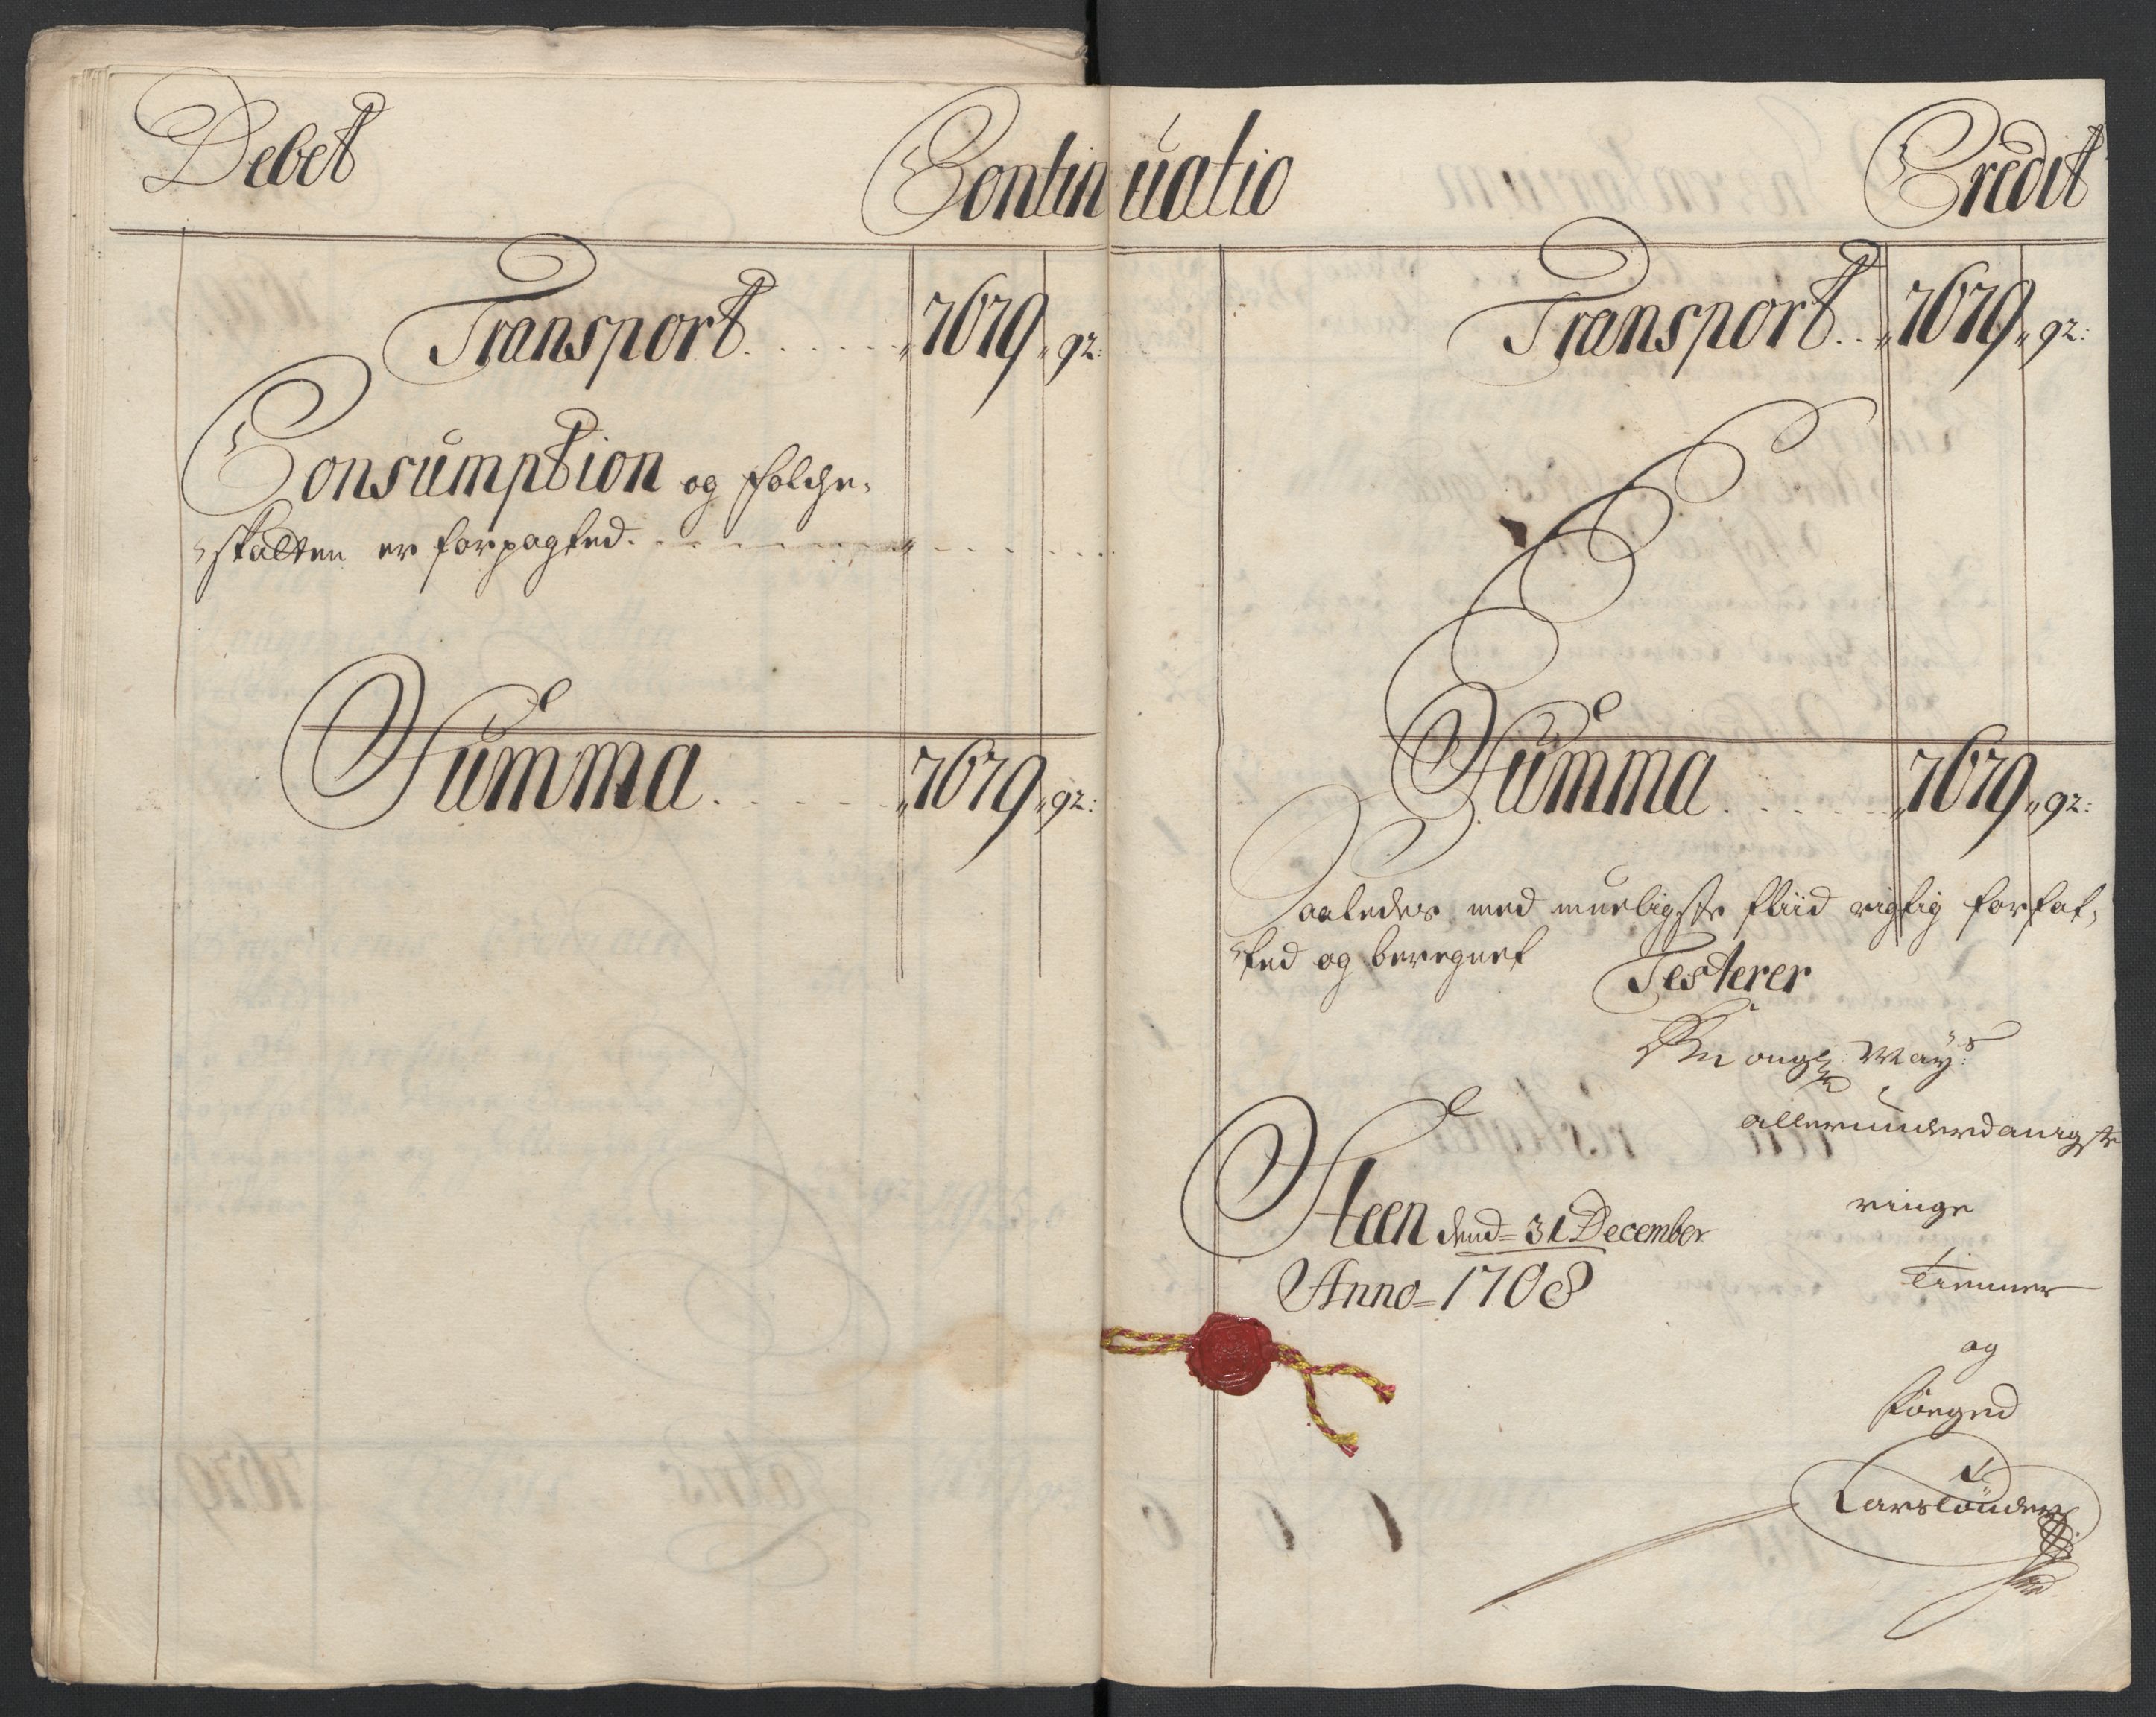 Debet
Continuatio
Credit
Transport . . . . . . „ 7679 „ 92:
Consumption og Folche-
skatten er forpagted. . . . . . . .
Summa . . . . . . „ 7679 „ 92:
Transport . . „ 7679 „ 92:
Summa . . . . . . „ 7679 „ 92:
Saaledes med mueligste fliid rigtig forfat-
ted og beregnet Testerer
Kongl: May:s
allerunderdanigste
ringe
Tienner
og
Foeged
Steen dend= 31 December
Anno= 1708